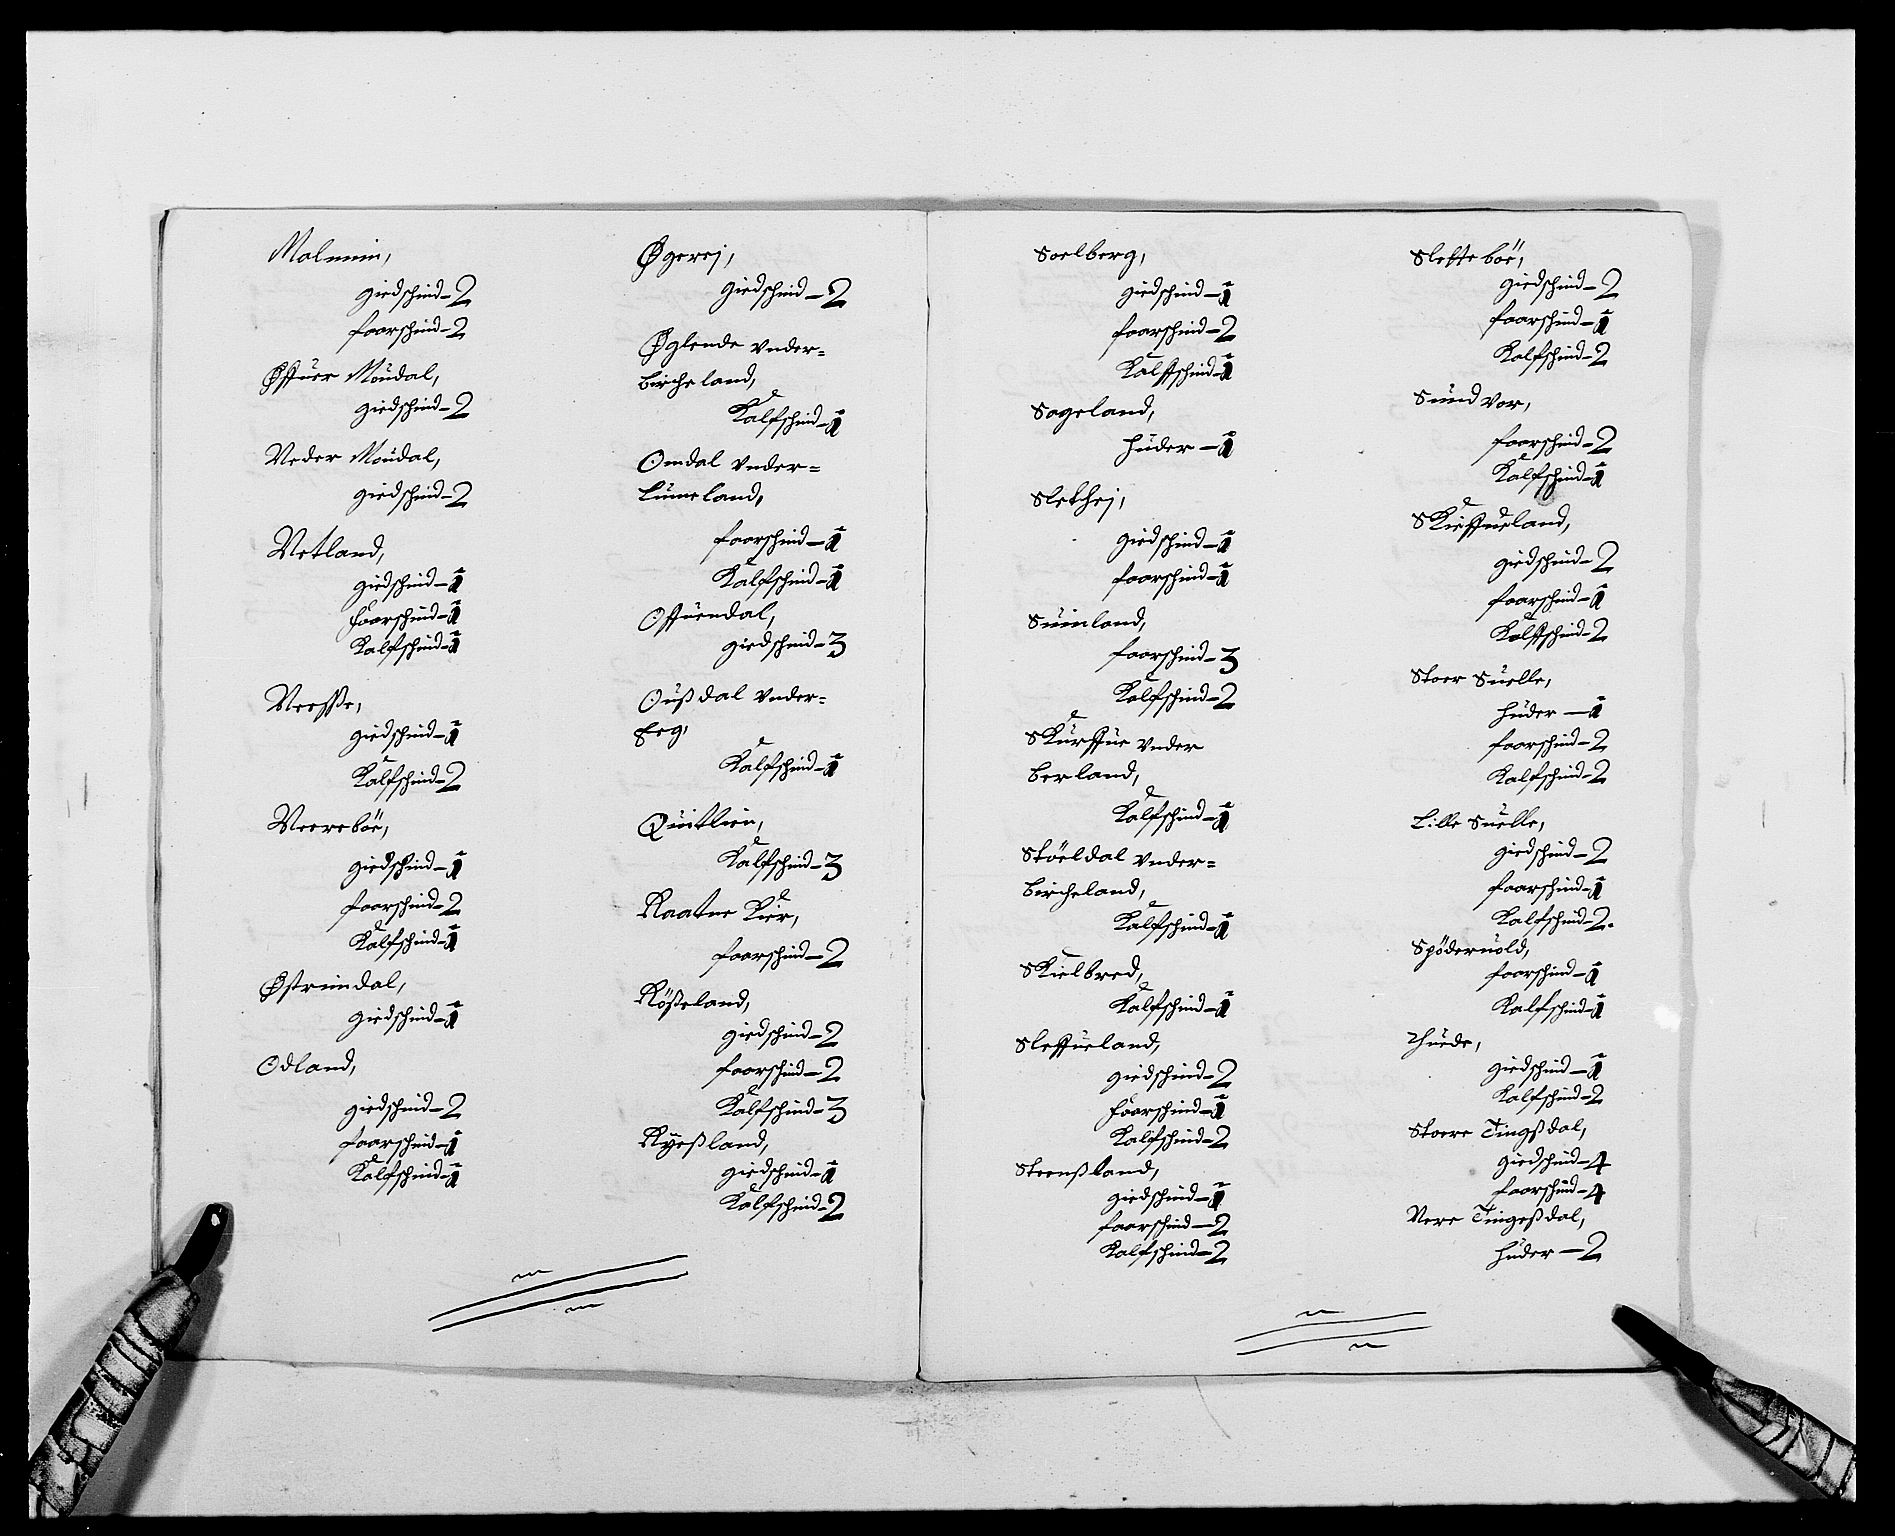 Malmin,
giedschind – 2
faarschind – 2
Øffuer Moudal,
giedschind – 2
Neder Moudal,
giedschind – 2
Netland,
giedschind – 1
faarschind – 1
Kalfschind – 1
Neesse,
giedschind – 1
Kalfschind – 2
Neereböe,
giedschind – 1
faarschind – 2
Kalfschind – 1
Østrimdal,
giedschind – 1
Odland,
giedschind – 2
faarschind – 1
Kalfschind – 1
Øgerej,
giedschind – 2
Øglende vnder=
bircheland,
Kalfschind – 1
Omdal vnder=
Luneland,
faarschind – 1
Kalfschind – 1
Offuendal,
giedschind – 3
Oußdal vnder=
Eeg,
Kalfschind – 1
Quitlien,
Kalfschind – 3
Raatne Kier,
faarschind – 2
Rößeland,
giedschind – 2
faarschind – 2
Kalfschind – 3
Ryeßland,
giedschind – 1
Kalfschind – 2
Soelberg,
giedschind – 1
faarschind – 2
Kalffschind – 1
Sageland,
huder – 1
Slethej,
giedschind – 1
faarschind – 1
Suinland,
faarschind – 3
Kalfschind – 2
SKurffue vnder
berland,
Kalfschind – 1
Stöeldal vnder=
bircheland,
Kalfschind – 1
SKielbred,
Kalfschind – 1
Sleffueland,
giedschind – 2
faarschind – 1
Kalfschind – 2
Steenßland,
giedschind – 1
faarschind – 2
Kalfschind – 2
Sletteböe,
giedschind – 2
faarschind – 1
Kalfschind – 2
Sundvor,
faarschind – 2
Kalfschind – 1
SKieffueland,
giedschind – 2
faarschind – 1
Kalffschind – 2
Stoer Suelle,
huder – 1
faarschind – 2
Kalfschind – 2
Lille Suelle,
giedschind – 2
faarschind – 1
Kalfschind – 2.
Spöderuold,
faarschind – 1
Kalfschind – 1
Thuede,
giedschind – 1
Kalfschind – 2
Stoere Tingßdal,
giedschind – 4
faarschind – 4
Nere Tingeßdal,
huder – 2